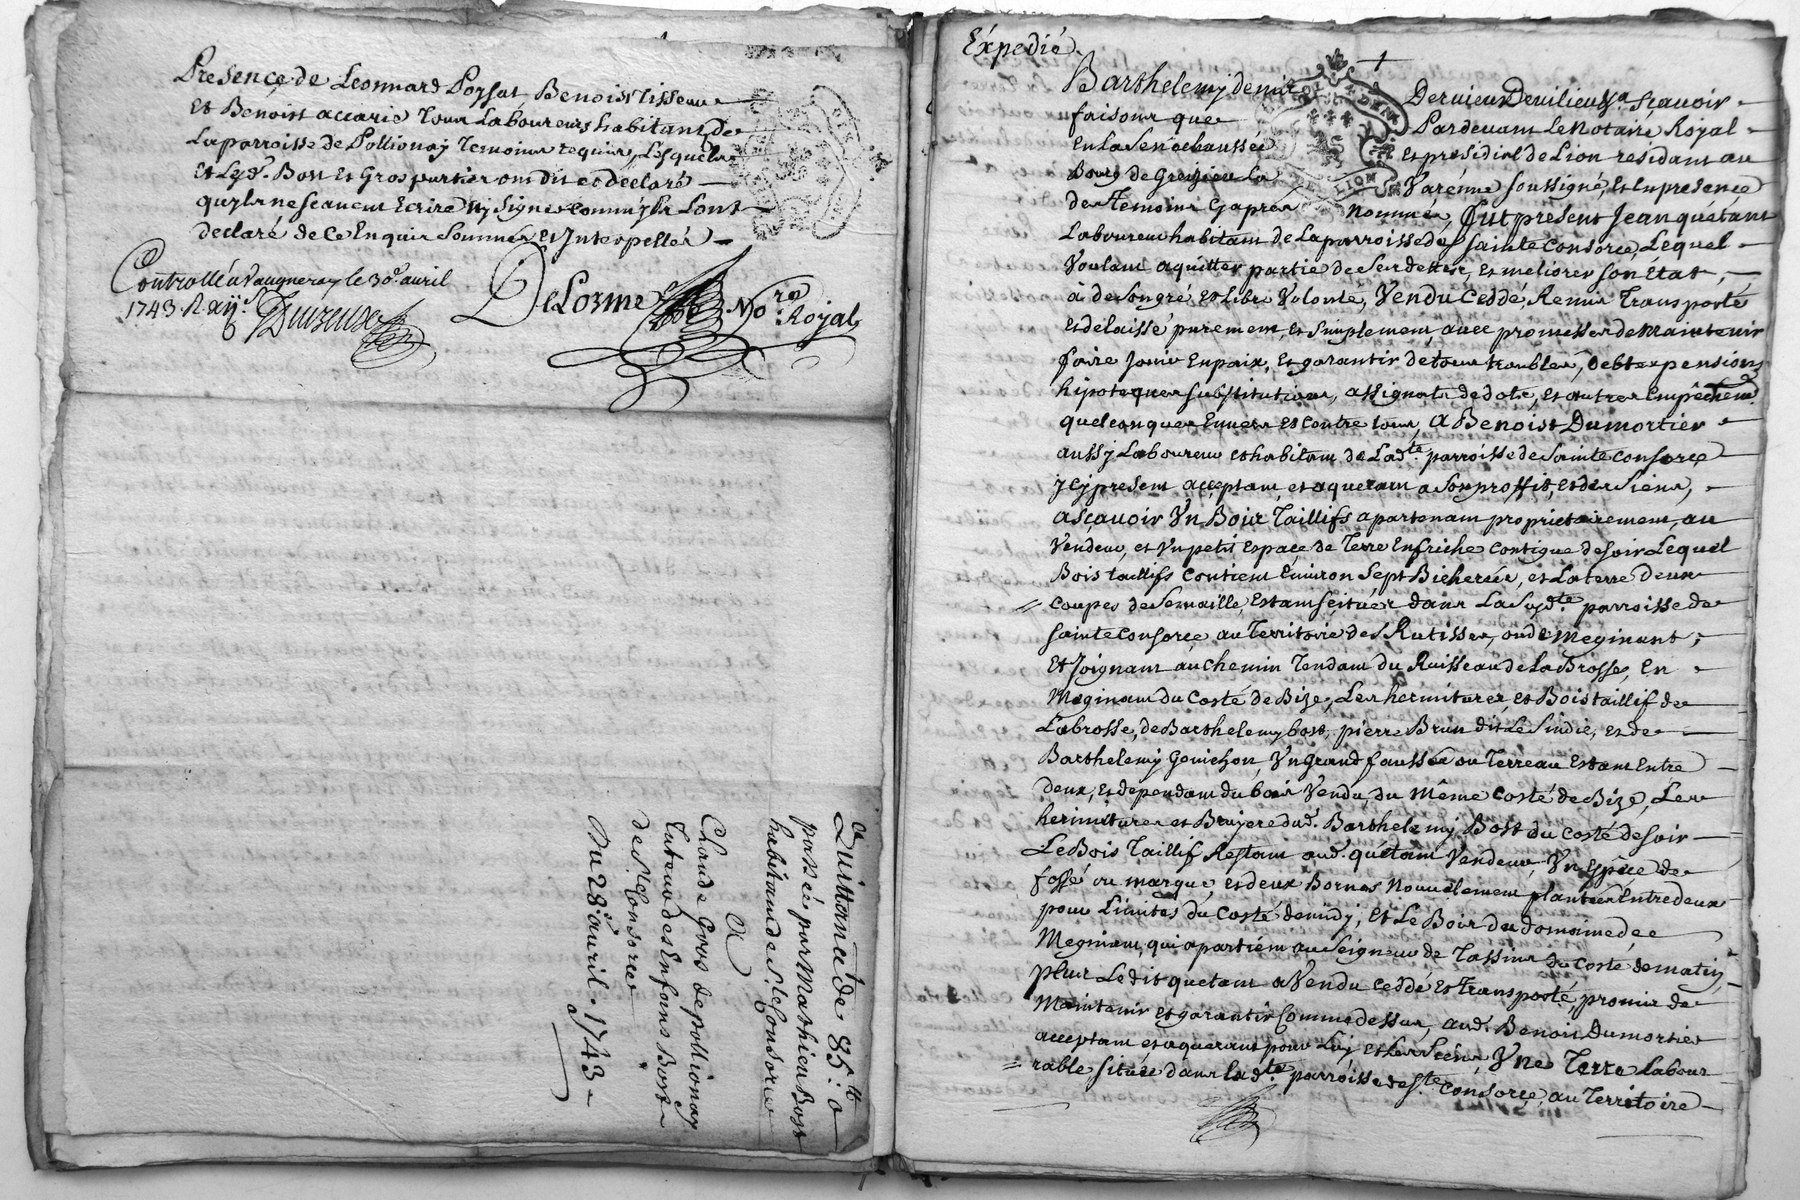 Presence de Leonnard Poyssat Benoist Tisseur
Et Benoist accarie Tous Laboureurs habitants de
La parroisse de Pollionay Temoins requis, Lesquels
Et Lesd. Bost Et Gros partier ont dit et déclaré
quyls ne scaveut Ecrire ny signer comme yls L'ont
declaré de ce Enquis sommés et Interpellés
Controllé a Vaugneray le 30e avril
1743 R xij s.
DeLorme No.re Royal
Quittance de 85 tt 0
passée par Mathieu Bost
habitant de Ste Consorce
A
Claude Gros de pollionay
Tuteur des Enfans Bost
de Ste Consorce
Du 28e avril 1743
Éxpedié
Barthelemy demir Dervieux Devilieu sr. Sçavoir
faisons que Pardevant Le Notaire Royal
En La Senéchaussée Et présidial de Lion résidant au
Bourg de Grézieu La Varénne soussigné, et En presence
des Temoins Cyapres Nommés, fut présent Jean quétant
Laboureur habitant de La parroisse de Sainte Consorce, Lequel
Voulant aquitter partie de Ses dettes, et meliorer son Etat,
à de son gré et Libre Volonté, Vendu Ceddé, Remis Transporté
et delaissé purement, et simplement, avec promesses de Maintenir
faire Jouir En paix, et garantir de tous troubles, debtes pensions
hipoteques substitutions, assignats de dote, et autres Empêchem.
quelconques Envers et Contre tous, A Benoist Dumortier
aussy Laboureur et habitant de Lad.te parroisse de Sainte Consorce
jcy present acceptant, et aquerant a son proffit, et des Siens,
asçavoir Un Bois Taillifs apartenant proprietairement, au
Vendeur, et Un petit Espace de Terre En friche contigue de soir Lequel
Bois taillifs contient Environ Sept Bicherées, et La terre deux
coupes de Semaille, Estant scitués dans La susd.te parroisse de
Sainte Consorce, au Territoire des Rutisses, ou de Meginant,
Et Joignant au chemin Tendant du Ruisseau de La Brosse, En
Meginant du Costé de Bize, Les hermitures, et Bois taillif de
Labrosse, de Barthelemy bost, pierre Brun dit Le Sindic, et de
Barthelemy Gonichon, Un grand faussé ou Terreau Estant Entre
deux, et dependant du bois Vendu, du Même costé de Bize, Les
herimitures et Bruyere dud. Barthelemy Bost du costé de soir
Le Bois Taillif Restant aud. quétant Vendeur, Un Espêce de
fossé ou marque, et deux Bornes Nouvelement plantées Entredeux
pour Limites du Costé de midy, Et Le Bois du domaine de
Meginant, qui apartient au Seigneur de Tassins du costé de matin,
plus Ledit quetant a Vendu ceddé et Transporté, promis de
Maintenir et garantir Comme dessus, aud. Benoist Dumortier
acceptant et aquerant pour Luy et Les Siens, Une Terre Labou-
rable située dans lad.te parroisse de Ste Consorce, au Territoire